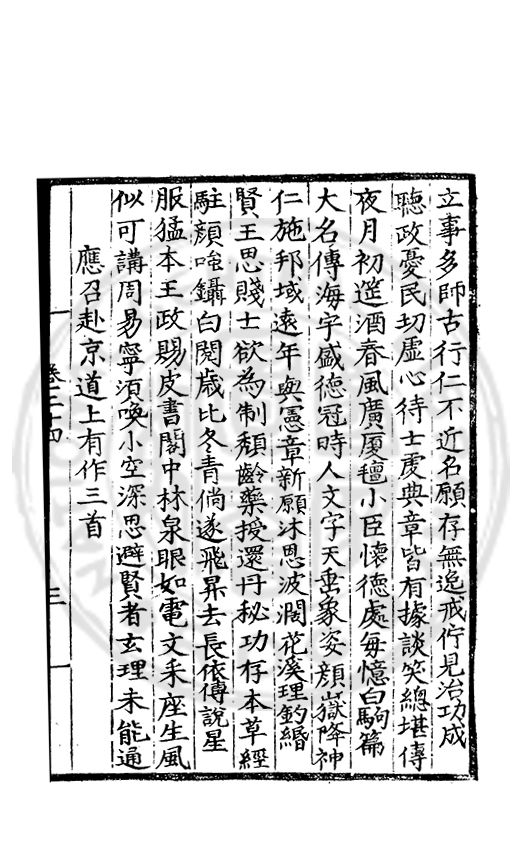 立事多師古行仁不近名願存無逸戒佇見治功成
聽政憂民切虛心待士虔典章皆有據談笑總堪傳
夜月初筵酒春風廣厦氊小臣懷德處每憶白駒篇
大名傳海宇盛德冠時人文字天垂象姿顏嶽降神
仁施邦域遠年與憲章新願沐恩波濶花溪理釣緡
賢王思賤士欲為制頹齡藥授還丹秘功存本草經
駐顏咍鑷白閱歲比冬青倘遂飛昇去長依傅說星
服猛本王政賜皮書閣中林泉眼如電文采座生風
似可講周易寧須喚小空深思避賢者玄理未能通
應召赴京道上有作三首
卷二十四
三